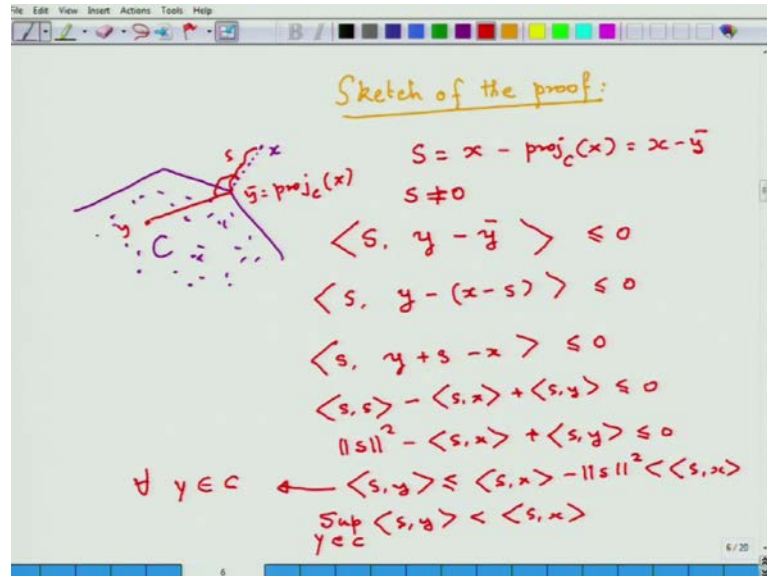 File Edit View Insert Actions Tools Help
Sketch of the proof:
s x
ȳ = proj_c(x)
y
C
S = x - proj_c(x) = x - ȳ
s ≠ 0
<s, y - ȳ> ≤ 0
<s, y - (x - s)> ≤ 0
<s, y + s - x> ≤ 0
<s, s> - <s, x> + <s, y> ≤ 0
||s||² - <s, x> + <s, y> ≤ 0
∀ y ∈ c ← <s, y> ≤ <s, x> - ||s||² < <s, x>
Sup <s, y> < <s, x>
y ∈ c
6/20
6